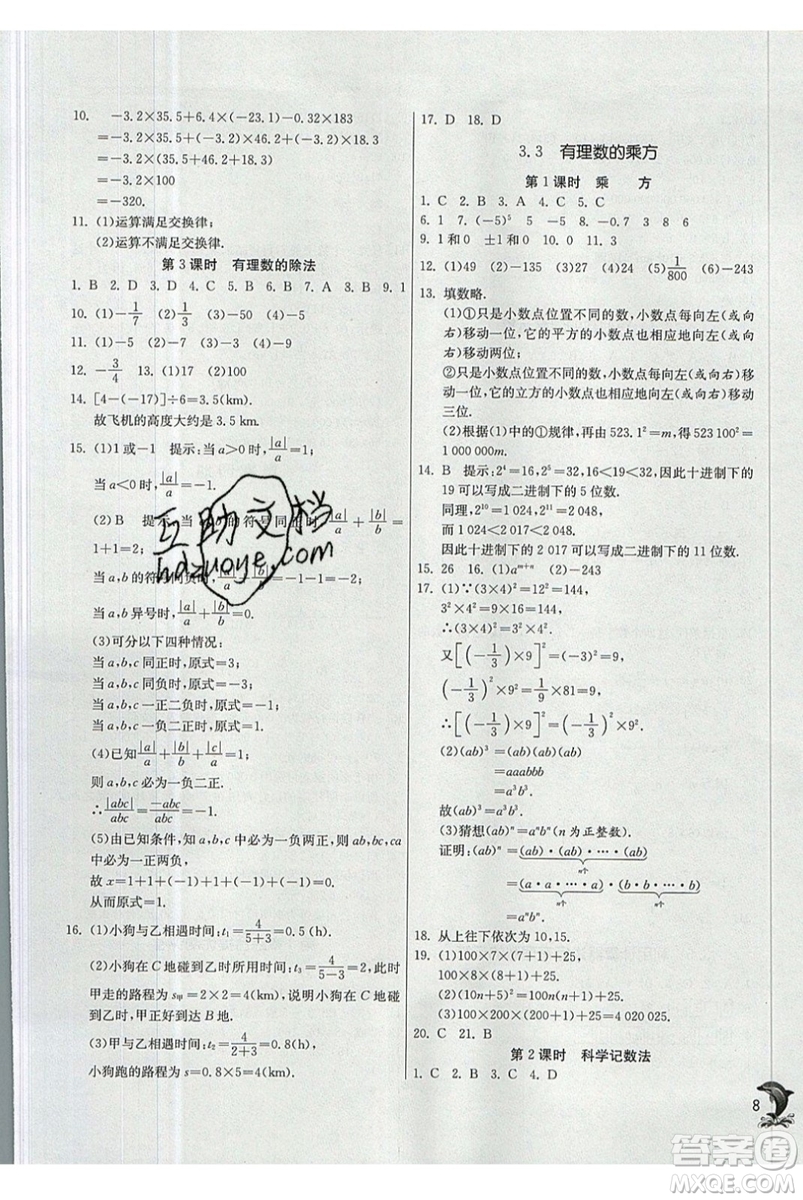 10. －3.2×35.5＋6.4×(－23.1)－0.32×183
＝－3.2×35.5＋(－3.2)×46.2＋(－3.2)×18.3
＝－3.2×(35.5＋46.2＋18.3)
＝－3.2×100
＝－320.
11. (1)运算满足交换律.
(2)运算不满足交换律.
第3课时 有理数的除法
1. B 2. D 3. D 4. C 5. B 6. B 7. A 8. B 9. 1
10. (1)－1/7 (2)1/3 (3)－50 (4)－9
11. (1)－5 (2)－9 (3)9
12. －3/4 13. (1)17 (2)100
14. [4－(－17)]÷6＝3.5(km).
故飞机的高度大约是 3.5 km.
15. (1)1或－1 提示:当a＞0时,|a|/a＝1.
当a＜0时,|a|/a＝－1.
(2) B 提示:当a,b的符号同正时,|a|/a＋|b|/b＝
1＋1＝2;
当a,b的符号同负时,|a|/a＋|b|/b＝－1－1＝－2;
当a,b异号时,|a|/a＋|b|/b＝0.
(3)可分以下四种情况:
当a,b,c同正时,原式＝3;
当a,b,c同负时,原式＝－3;
当a,b,c一正二负时,原式＝－1;
当a,b,c一负二正时,原式＝1.
(4)已知|a|/a＋|b|/b＋|c|/a＝1.
则a,b,c必为一负二正.
∴|abc|/abc＝－abc/abc＝－1.
(5)由已知条件,知a,b,c中必为一负两正,则ab,bc,ca
中必为一正两负,
故x＝1＋1＋(－1)＋1＋(－1)＋(－1)＝0.
从而原式＝1.
16. (1)小狗与乙相遇时间:t₁＝4/(5＋3)＝0.5(h).
(2)小狗在C地碰到乙时所用时间:t₃＝4/(5－3)＝2(h).
甲走的路程为s甲＝2×2＝4(km),说明小狗在C地碰
到乙时,甲正好到达B地.
(3)甲与乙相遇时间:t₂＝4/(2＋3)＝0.8(h).
小狗跑的路程为s＝0.8×5＝4(km).
17. D 18. D
3.3 有理数的乘方
第1课时 乘 方
1. C 2. B 3. A 4. C 5. C
6. 1 7. (－5)⁵ 5 －5 8. －0.7 3 8 6
9. 1和0 ±1和0 10. 0 11. 3
12. (1)49 (2)－135 (3)27 (4)20 (5)1/800 (6)－243
13. 填数略.
(1)①只是小数点位置不同的数,小数点每向左(或向
右)移动一位,它的平方的小数点也相应地向左(或向
右)移动两位;
②只是小数点位置不同的数,小数点每向左(或向右)
移动一位,它的立方的小数点也相应地向左(或向右)移动
三位.
(2)根据(1)中的①规律,再由523.1²＝m,得523 100²＝
1 000 000m.
14. B 提示:2⁴＝16,2⁵＝32,16＜19＜32,因此十进制下的
19可以写成二进制下的5位数.
同理,2¹⁰＝1 024,2¹¹＝2 048,
而1 024＜2 017＜2 048.
因此十进制下的2 017可以写成二进制下的11位数.
15. 26 16. (1)aᵐ⁺ⁿ (2)－243
17. (1)∵(3×4)²＝12²＝144,
3²×4²＝9×16＝144,
∴(3×4)²＝3²×4².
又[(－1/3)×9]²＝(－3)²＝9,
(－1/3)²×9²＝1/9×81＝9,
∴[(－1/3)×9]²＝(－1/3)²×9².
(2)(ab)³＝(ab)(ab)(ab)
＝aaabbb
＝a³b³.
故(ab)³＝a³b³.
(3)猜想(ab)ⁿ＝aⁿbⁿ(n为正整数).
证明:(ab)ⁿ＝(ab)·(ab)·…·(ab)
n个
＝(a·a·…·a)(b·b·…·b)
n个 n个
＝aⁿbⁿ
18. 从上往下依次为10,15.
19. (1)100×7×(7＋1)＋25,
100×8×(8＋1)＋25.
(2)(10n＋5)²＝100n(n＋1)＋25.
(3)100×200×201＋25＝4 020 025.
20. C 21. B
第2课时 科学记数法
1. C 2. B 3. C 4. D
8
互助文档
hdzuoye.com
答案圈
MXQE.COM